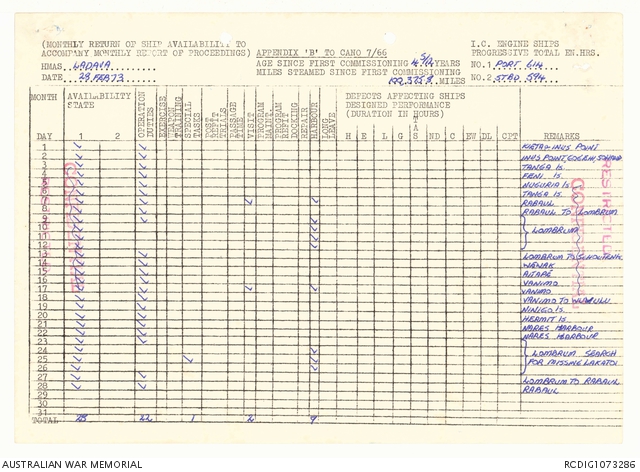 (MONTHLY RETURN OF SHIP AVAILABILITY TO
ACCOMPANY MONTHLY REPORT OF PROCEEDINGS) APPENDIX 'B' TO CANO 7/66
I.C. ENGINE SHIPS
PROGRESSIVE TOTAL EN.HRS.
HMAS LADAVA
AGE SINCE FIRST COMMISSIONING 4 5/12 YEARS
NO.1 PORT 614
DATE 28 FEB 73
MILES STEAMED SINCE FIRST COMMISSIONING
MILES
NO.2 STBD 594
MONTH
AVAILABILITY STATE
OPERATION DUTIES
EXERCISE
WEAPON TRAINING
SPECIAL TASKS
POST REFIT TRIALS
PASSAGE TIME
VISIT
PROGRAM MAINT.
PROGRAM REFIT
DOCKING
REPAIR
HARBOUR
LONG LEAVE
DEFECTS AFFECTING SHIPS
DESIGNED PERFORMANCE
(DURATION IN HOURS)
DAY 1 2 H E L TAS G S ND C EW DL CPT REMARKS
1 KIETA-INUS POINT
2
3 TANGA IS.
4 FENI IS.
5 NUGURIA IS.
6 TANGA IS.
7 RABAUL
8 RABAUL TO LOMBRUM
9
10 LOMBRUM
11
12
13
14 WEWAK
15 AITAPE
16 VANIMO
17 VANIMO
18 VANIMO TO
19 NINIGO IS.
20 HERMIT IS.
21 NARES HARBOUR
22 NARES HARBOUR
23
24 LOMBRUM SEARCH
25 FOR MISSING LAKATOI
26
27 LOMBRUM TO RABAUL
28 RABAUL
29
30
31
TOTAL 28 22 1 2 9
RESTRICTED
AUSTRALIAN WAR MEMORIAL
RCDIG1073286